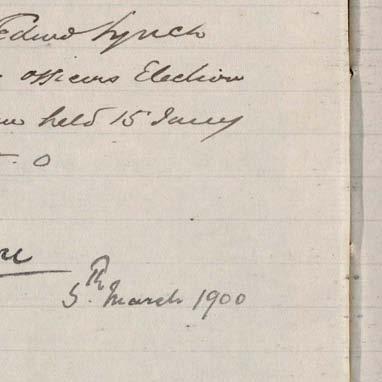 Edwd Lynch
officers Election
held 15 Jany
0
5th March 1900